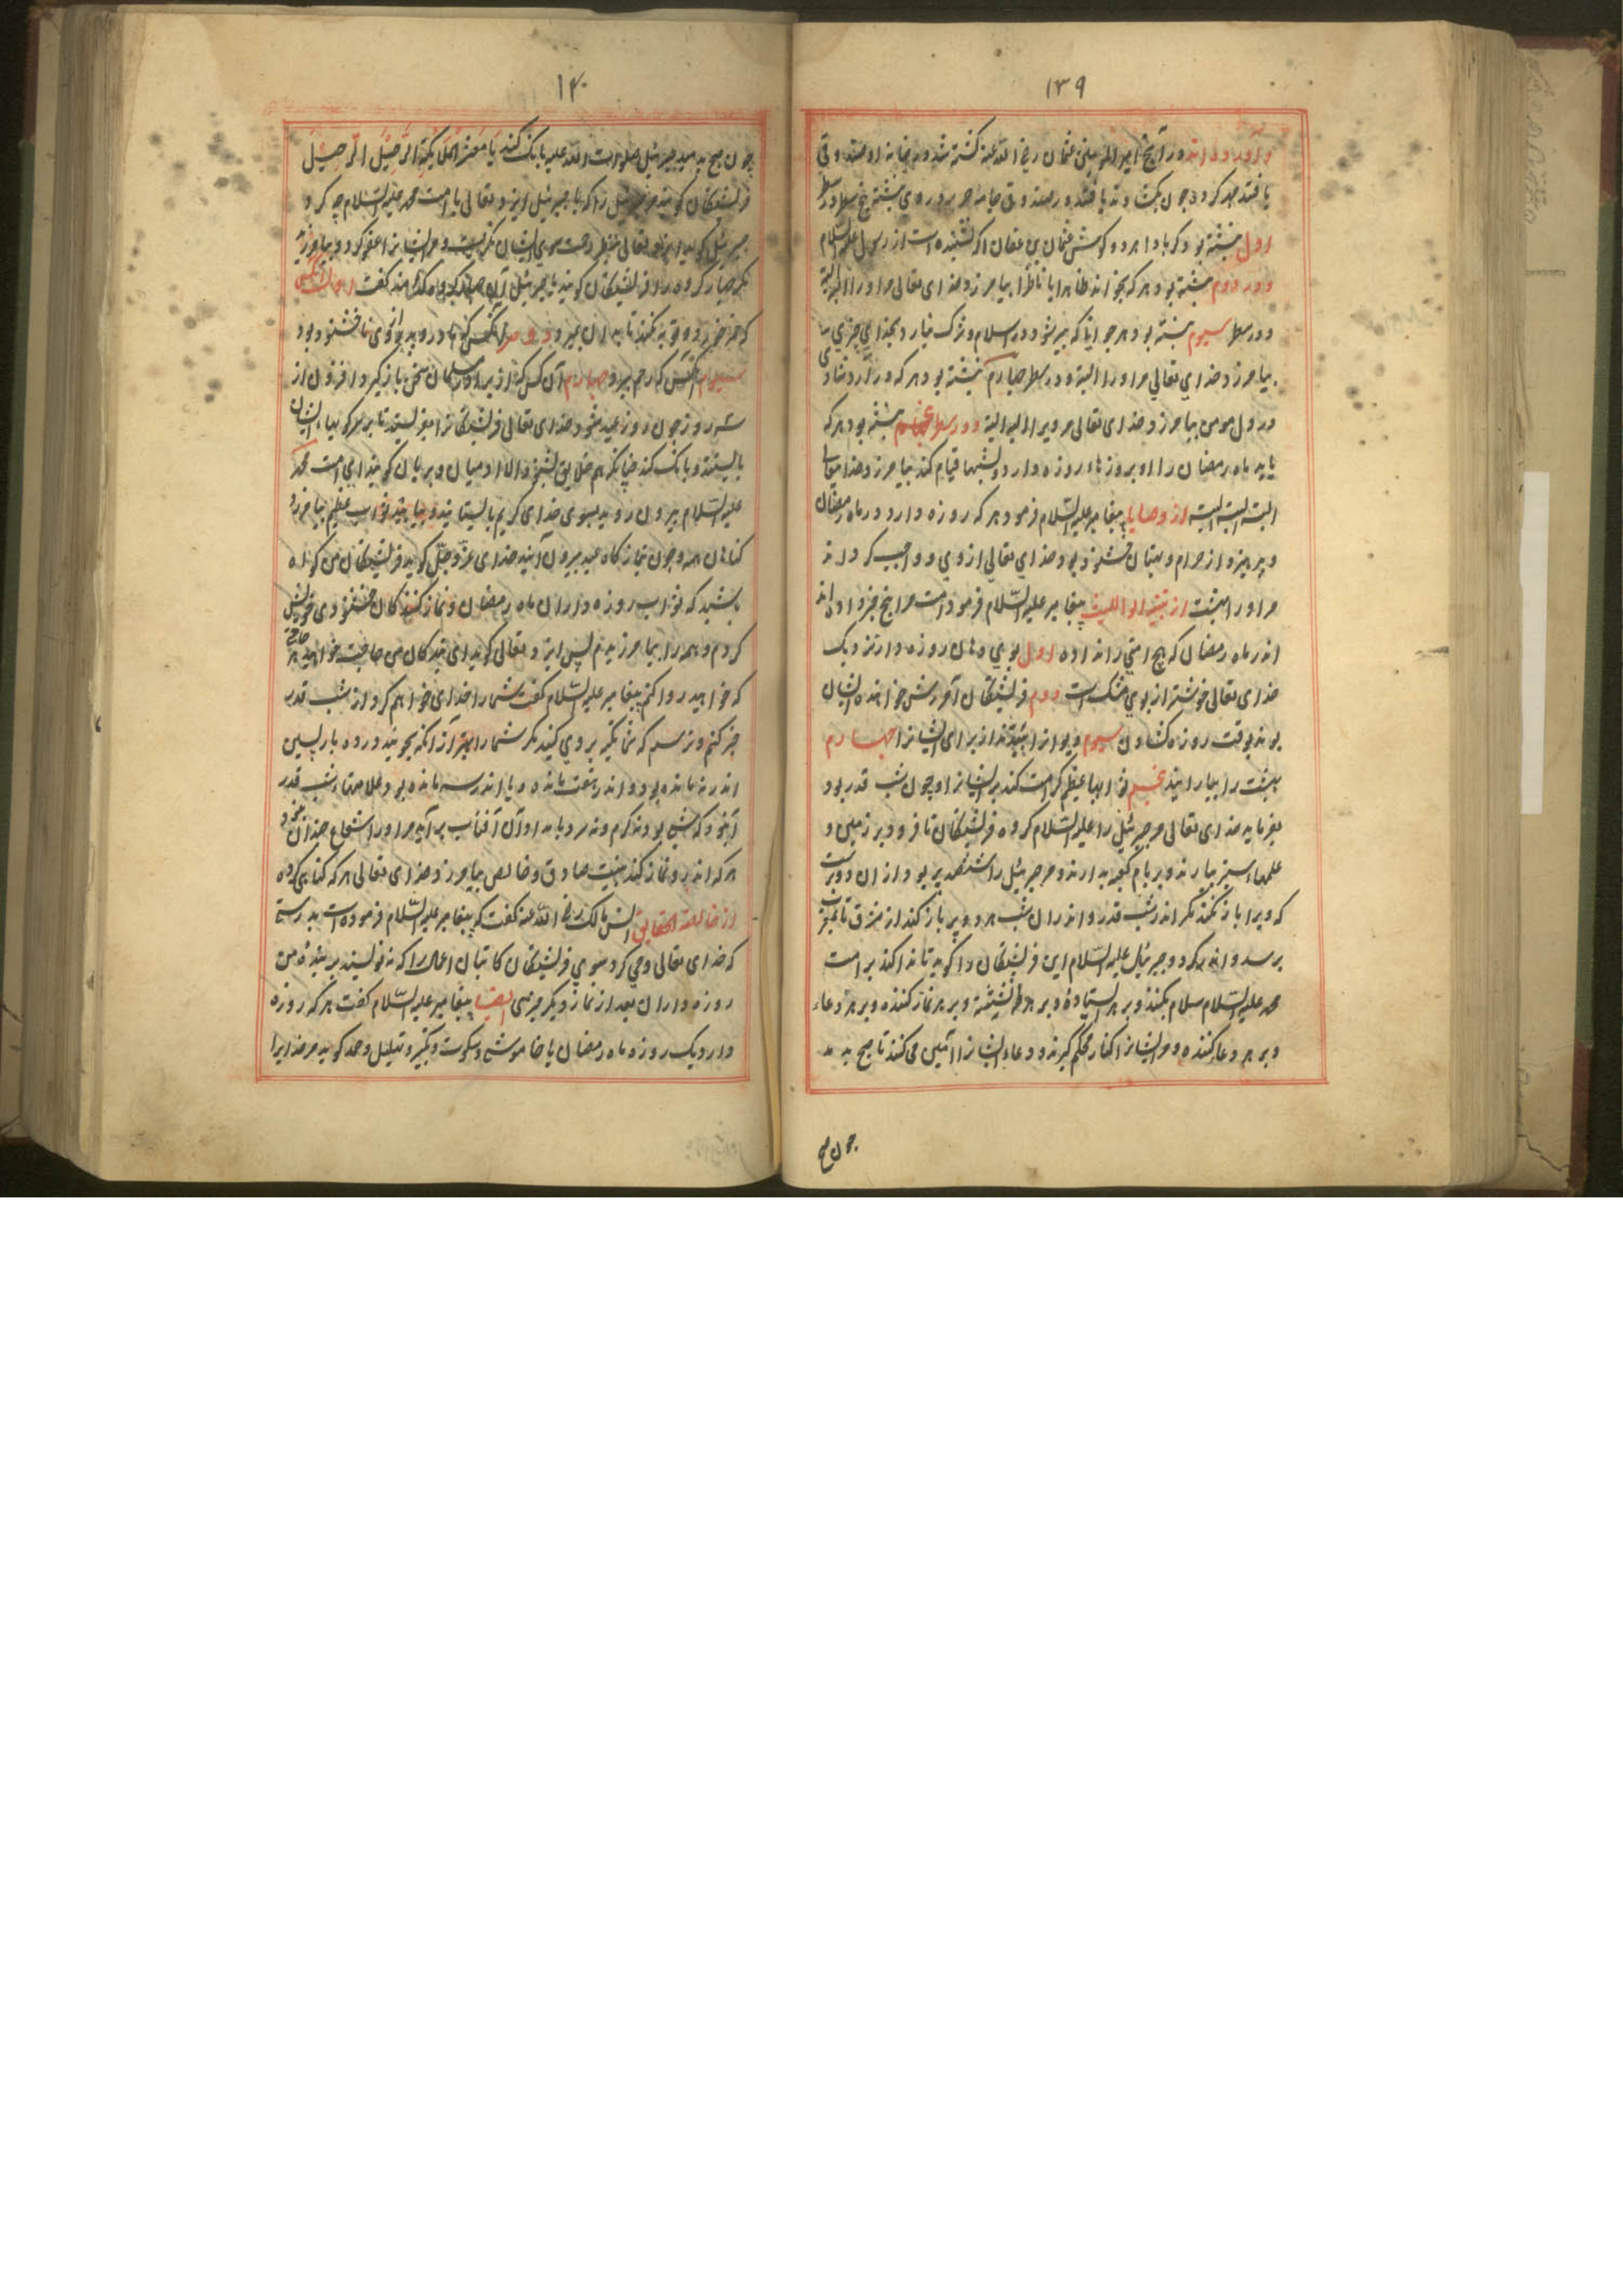 ۱۳۹
و آورده اند در آنچه امیر المومنین عثمان رضی الله عنه کشته شد و به خانه او صندوقی
یافتند مهر کرده چون بکشادند یافتند در صندوق جامه حریر در وی نبشته پنج سطر در سطر
اول نبشته بود که با دا هر دو گوش عثمان بن عفان اگر نشنیده است از رسول علیه السلام
و در دوم نبشته بود هر که بخواند ظاهرا یا ناظرا بیامرزد خدای تعالی مر او را البته
و در سطر سیوم نبشته بود هر جوانیکه پیر شود در اسلام و شرک نیارد بخدای چیزی
بیامرزد خدای تعالی مر او را البته و در سطر چهارم نبشته بود هر که در آرد شادی
در دل مومن بیامرزد خدای تعالی مر ویرا البته البته و در سطر پنجم نبشته بود هر که
یابد ماه رمضان را او بروزها روزه دارد و شبها قیام کند بیامرزد خدایتعالی
البته البته البته از وصایا پیغامبر علیه السلام فرمود هر که روزه دارد در ماه رمضان
و بپرهیزد از حرام و بهتان خشنود بود خدای تعالی از وی و واجب گرداند
مر او را بهشت از تنبیه ابو اللیث پیغامبر علیه السلام فرمود امت مرا پنج چیز داده اند
اندر ماه رمضان که هیچ امتی را نداده اول بوی دهان روزه دار نزدیک
خدای تعالی خوشتر از بوی مشک است دوم فرشتگان آمرزش خواهنده ایشان
بوند بوقت روزه کشادن سیوم دیوانرا ببندند از برای ایشانرا چهارم
بهشت را بیارایند پنجم ثوابهای عظیم کرامت کند بر ایشانرا و چون شب قدر بود
بفرماید خدای تعالی مر جبرئیل را علیه السلام گروه فرشتگان تا فرود بر زمین و
علمهاء سبز بیارند و بر بام کعبه بدارند و مر جبرئیل را ششصد پر بود و از ان دو پر است
که ویرا باز نکند مگر اندر شب قدر و اندران شب هر دو پر باز کند از مشرق تا بمغرب
برسد و جبرئیل علیه السلام این فرشتگان را گوید تا ندا کنند بر امت
محمد علیه السلام سلام بکنند و بر هر ایستاده و بر هر نشسته و بر هر نماز کننده و بر هر دعاء
و بر هر دعا کننده و مر ایشانرا کنار محکم گیرند و دعاء ایشانرا آمین می کنند تا صبح بدمد
چون صبح
۱۴۰
چون صبح بدمید جبرئیل صلوات الله علیه بانک کند یَا مَعْشَرَ الْمَلَائِکَةِ الرَّحِیْلَ الرَّحِیْلَ
فرشتگان گویند مر جبرئیل را که یا جبرئیل ایزد تعالی با امت محمد علیه السلام چه کرد
جبرئیل گوید ایزد تعالی بنظر رحمت سوی ایشان نگریست و مر ایشانرا عفو کرد و بیامرزید
مگر چهار گروه را فرشتگان گویند یا جبرئیل آن چهار گروه کدام اند گفت اول آنکس
که خمر خورد و توبه نکند تا بدان بمیرد دوم آنکس که مادر و پدر از وی ناخشنود بود
سیوم آنکس که رحم ببرد چهارم آن کس که از برادر مسلمان سخن باز گیرد افزون از
سه روز چون روز عید شود خدای تعالی فرشتگانرا بفرستد تا بر سر کوییها ایشان
بایستند و بانک کنند چنانکه هم خلایق بشنوند الا ادمیان و پریان گویند ای امت محمد
علیه السلام بیرون روید بسوی خدای کریم بایستانید و بیابید ثواب عظیم بیامرزد
گناهان همه و چون نماز گاه عید بیرون آیند خدای عزّ و جلّ گوید فرشتگان من گواه
باشید که ثواب روزه داران ماه رمضان و نماز کنندگان خشنودی خویش
کردم و همه را بیامرزیدم پس ایزد تعالی گوید ای بندگان من حاجت خواهید هر حاجتی
که خواهید روا کنم پیغامبر علیه السلام گفت شما را خدای خواهم کرد از شب قدر
خبر کنم و ترسم که شما تکیه بر وی کنید مگر شما را بهتر آنرا که بجویند در ده بازپسین
اندر نه مانده بود و اندر هفت مانده و یا اندر سه مانده بود و علامتهاء شب قدر
آنبود که شبی بود نه گرم و نه سرد بامداد آن آفتاب بر آید مر او را شعاع چندان نبود
هر که اندرو نماز کند به نیت صادق و خالص بیامرزد خدای تعالی هر گناهی که کرده
از خالصة الحقایق انس مالک رضی الله عنه گفت که پیغامبر علیه السلام فرموده است بدرستی
که خدای تعالی وحی کرد بسوی فرشتگان کاتبان اعمال را که نه نویسند بر بندهٔ من
روزه داران بعد از نماز دیگر چیزی ایضا پیغامبر علیه السلام گفت هر که روزه
دارد یک روزه ماه رمضان با خاموشی و سکوت و تکبیر و تهلیل و حمد گوید مر خدایرا